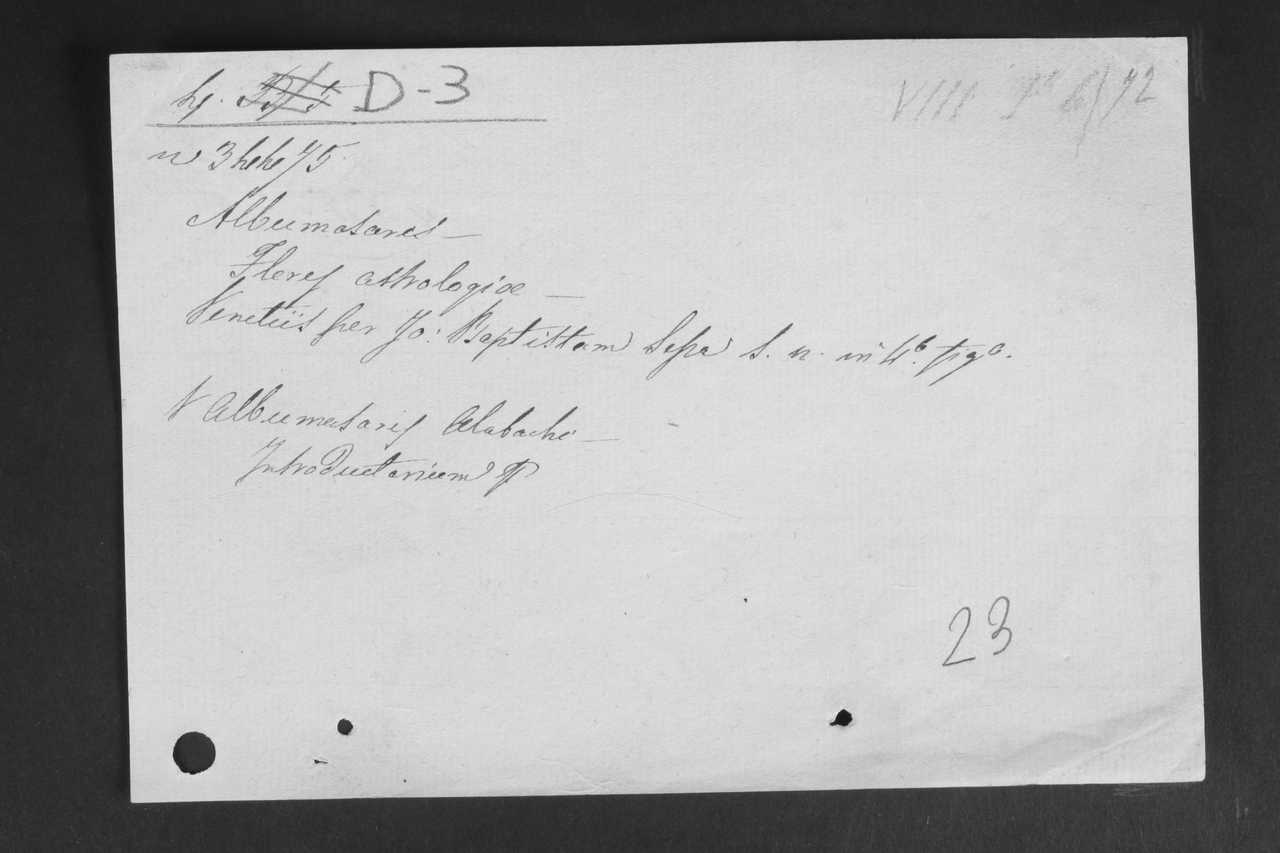 hg. D-3
Albumasaris —
Flores astrologiae —
Venetiis per Jo: Baptistam Sessa s. n. in 4° fig°.
V Albumasaris Alabachi —
Introductorium
23